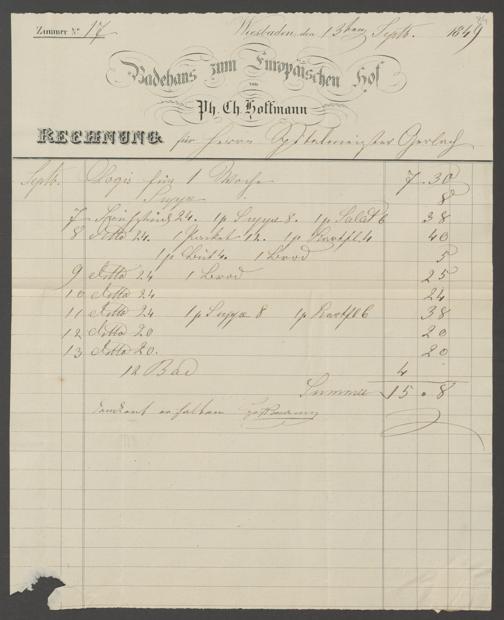 Zimmer Nº 17 Wiesbaden, den 13ten Septb. 1849
Badehaus zum Europäischen Hof
von
Ph. Ch. Hoffmann
RECHNUNG für Herrn Gerlach
Septb. Logis für 1 Woche 7 30
Suppe 8
7 Frühstück 24. 1 p Suppe 8. 1 p Salat 6 38
8 detto 24. 12. 1 p Kartfl 4 40
1 p But 4. 1 Brod 5
9 detto 24 1 Brod 25
10 detto 24 24
11 detto 24 1 p Suppe 8 1 p Kartfl 6 38
12 detto 20 20
13 detto 20. 20
12 Bad 4
Summe 15 8
erhalten Hoffmann